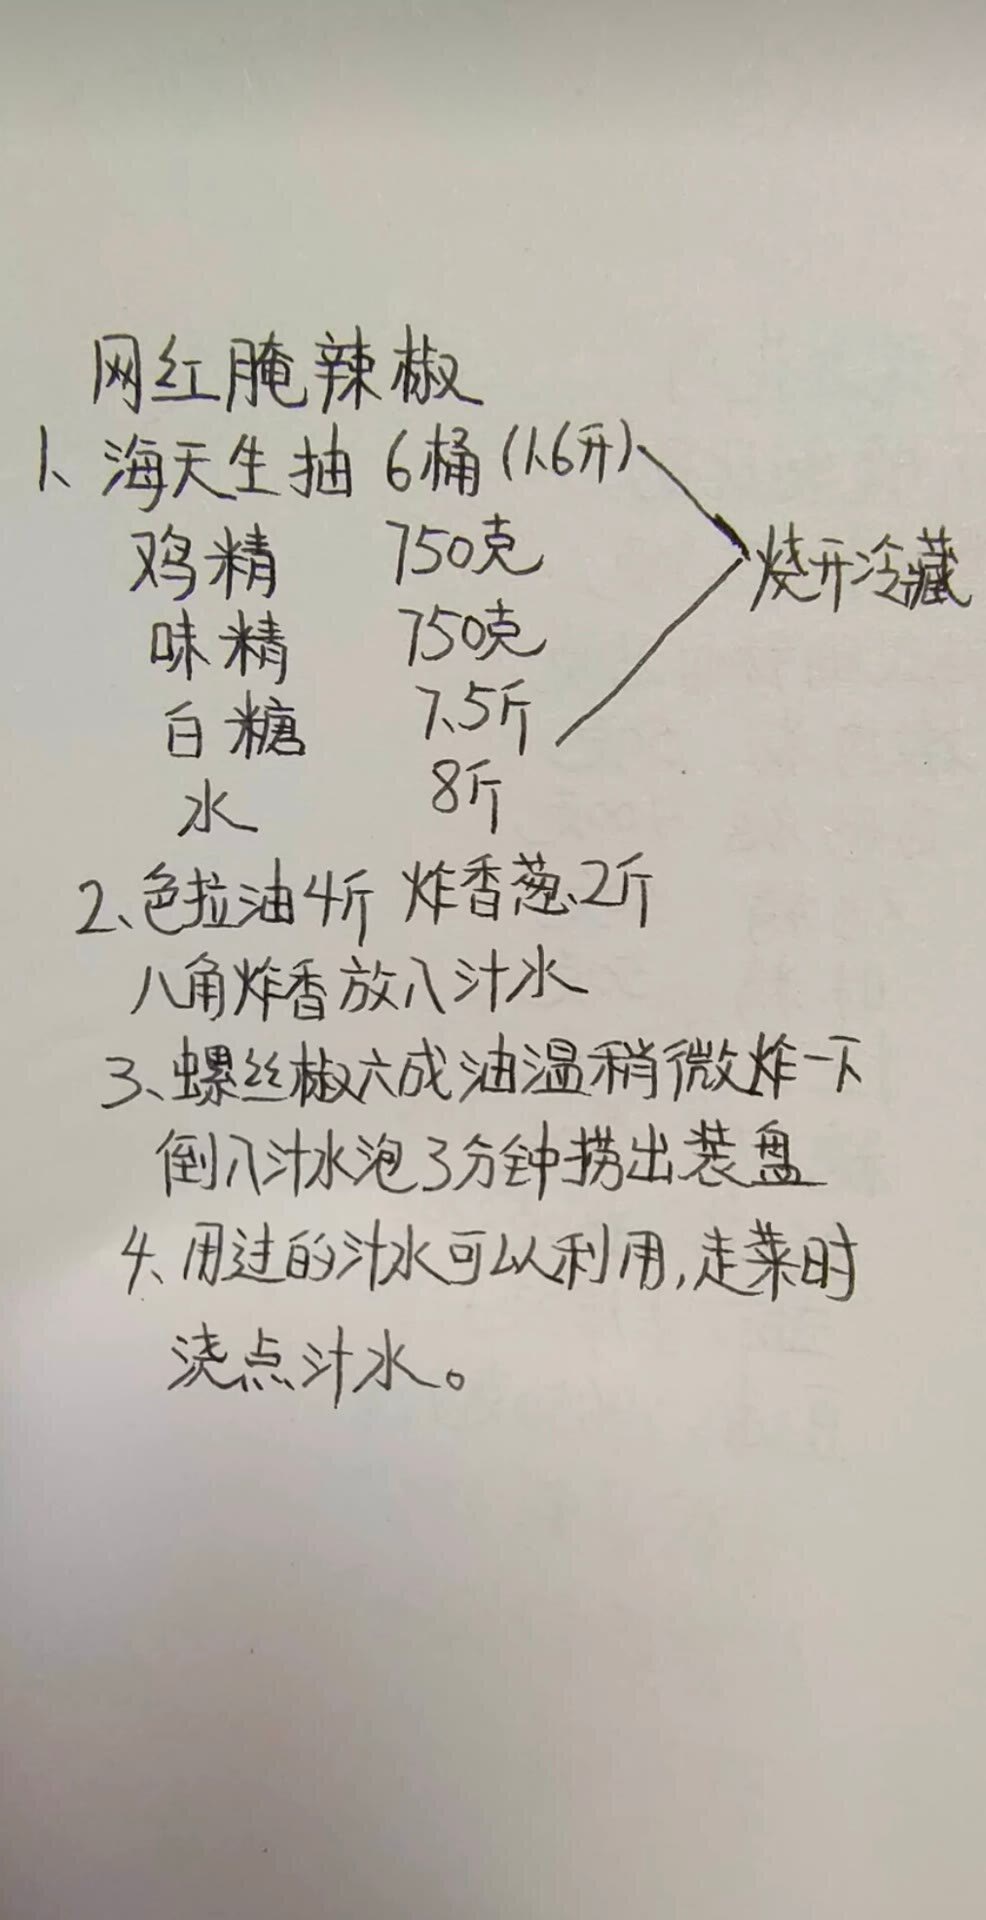 网红腌辣椒
1、海天生抽 6桶(1.6升)
鸡精 750克
烧开冷藏
味精 750克
白糖 7.5斤
水 8斤
2、色拉油4斤 炸香葱2斤
八角炸香放入汁水
3、螺丝椒六成油温稍微炸一下
倒入汁水泡3分钟捞出装盘
4、用过的汁水可以利用,走菜时
浇点汁水。